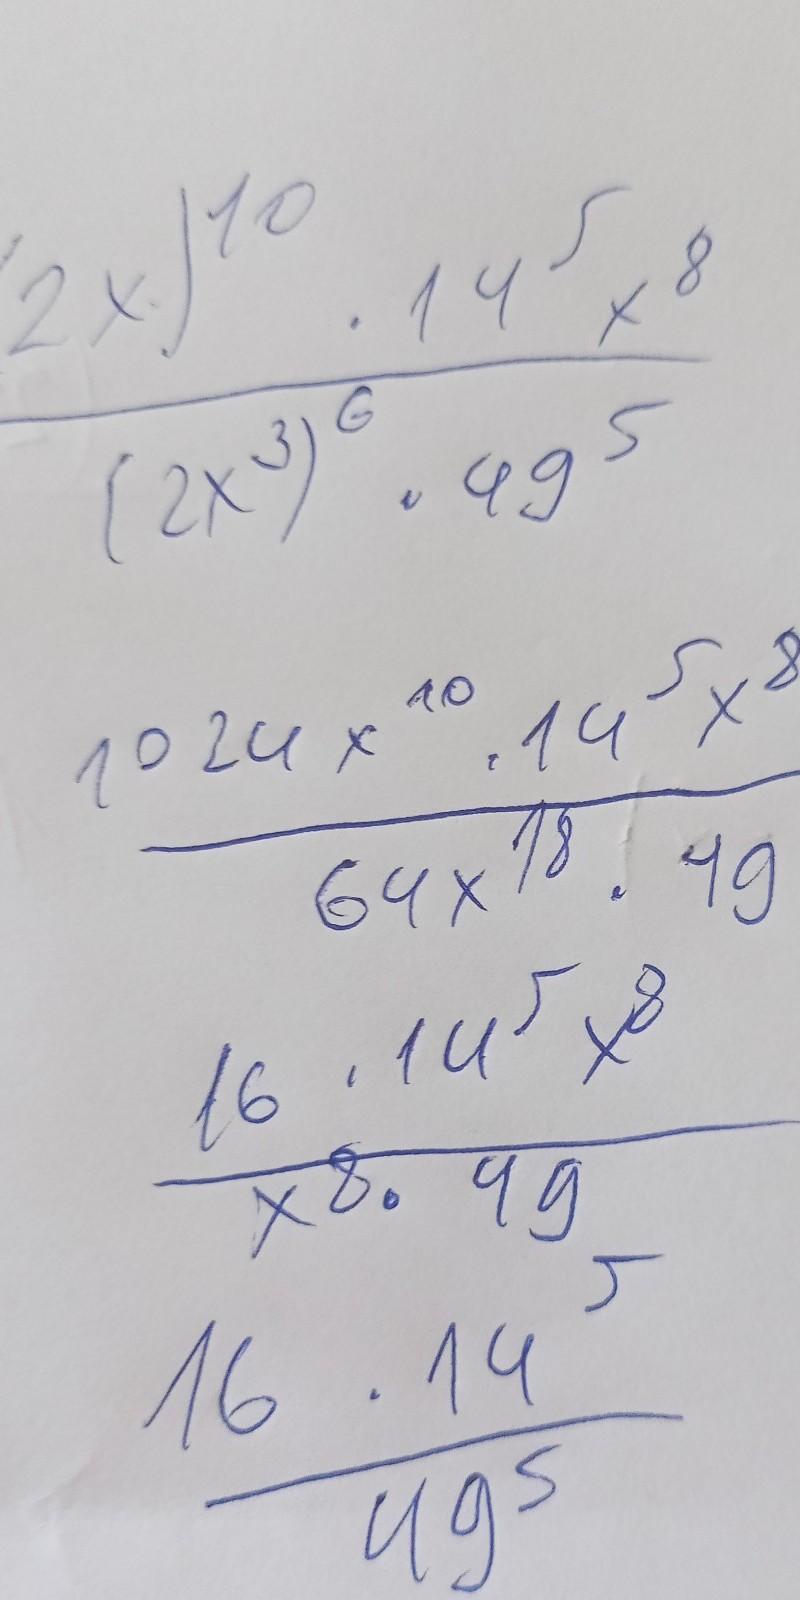 (2x)^10 · 14^5 x^8
(2x^3)^6 · 49^5
1024x^10 · 14^5 x^8
64x^18 · 49
16 · 14^5 x^8
x^8 · 49
16 · 14^5
49^5